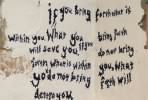 if you bring forth what is
within you. What you bring forth
will save you. if you do not bring
forth what is within you, What
you do not bring forth will
destroy you.